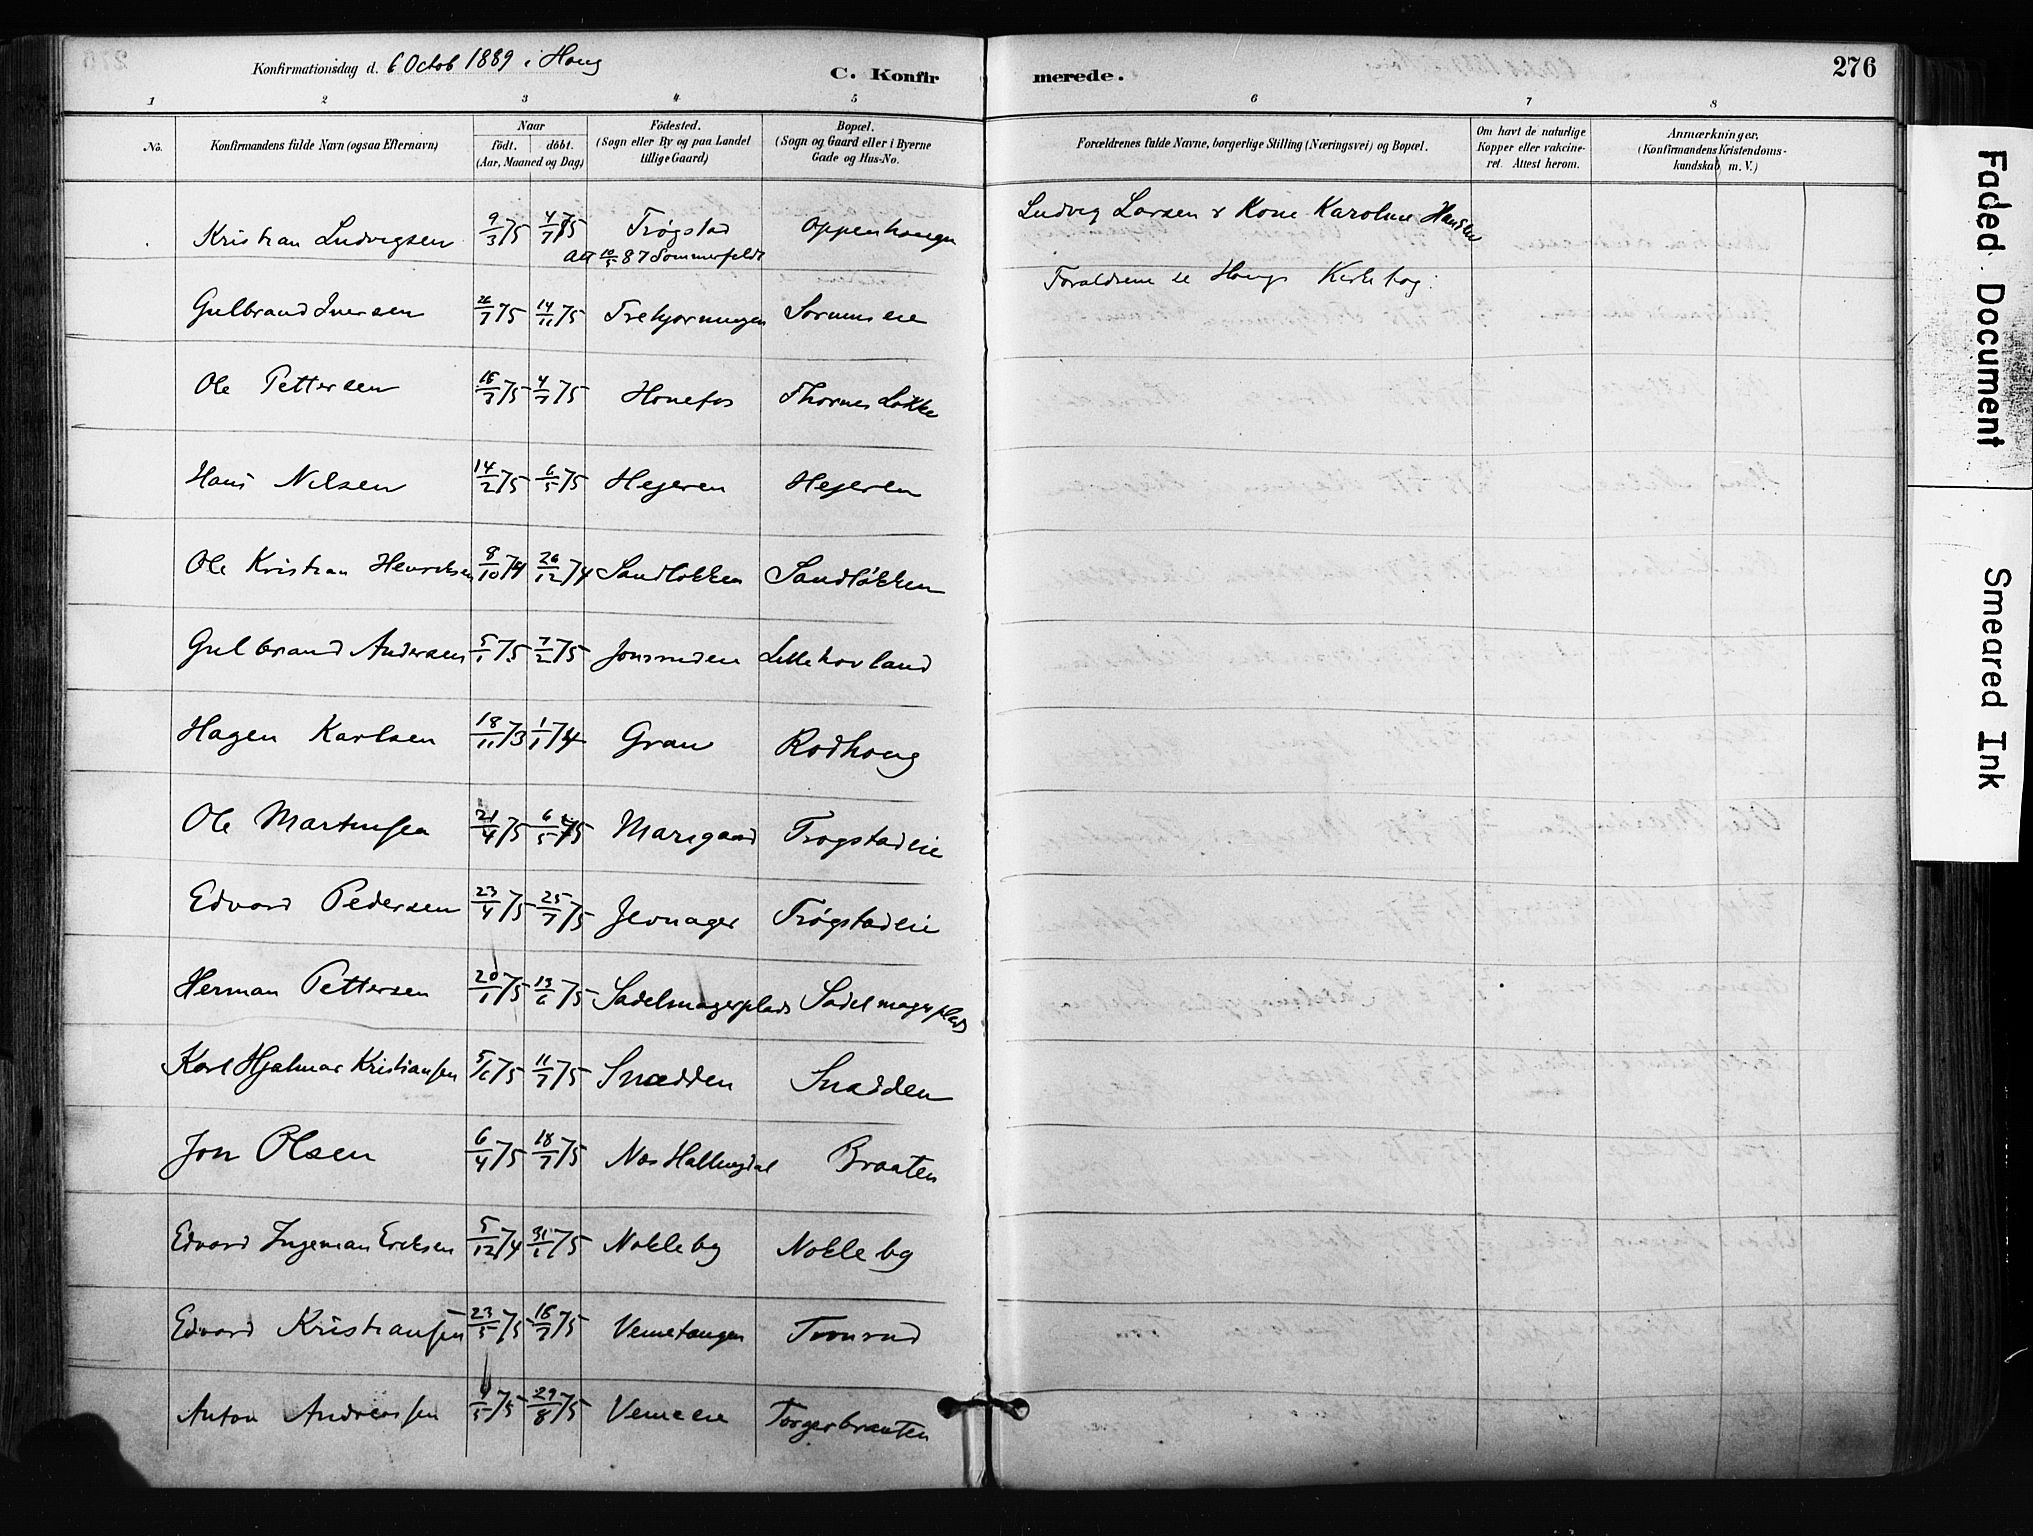 Konfirmationsdag d. 6 Octob 1889 i Houg
C. Konfirmerede.
276
1 2 3 4 5 6 7 8
No.
Konfirmandens fulde Navn (ogsaa Efternavn)
Naar
födt. döbt.
(Aar, Maaned og Dag)
Födested.
(Sogn eller By og paa Landet
tillige Gaard)
Bopæl.
(Sogn og Gaard eller i Byerne
Gade og Hus-No.
Forældrenes fulde Navne, borgerlige Stilling (Næringsvei) og Bopæl.
Om havt de naturlige
Kopper eller vakcine-
ret. Attest herom.
Anmærkninger.
(Konfirmandens Kristendoms-
kundskab m. V.)
Kristian Ludvigsen 9/3 75 4/7 75 Trøgstad Oppenhougen Ludvig Larsen & Kone Karoline Hansen
Att 87 Sommerfeldt
Forældrene se Hougs Kirkebog.
Gulbrand Iversen 26/7 75 14/11 75 Trehjørningen Sørumseie
Ole Pettersen 4/7 75 Hønefos Thornes Løkke
Hans Nilsen 14/2 75 6/5 75 Hejeren Hejeren
Ole Kristian Henriksen 8/10 74 26/12 74 Sandløkken Sandløkken
Gulbrand Andersen 5/1 75 7/2 75 Lillehovland
Hagen Karlsen 18/11 73 1/1 74 Gran Rødhoug
Ole Martinsen 21/4 75 6/5 75 Marigaard Trøgstadeie
Edvard Pedersen 23/4 75 25/7 75 Jevnager Trøgstadeie
Herman Pettersen 20/1 75 13/6 75 Sadelmagerplads Sadelmagerplads
Karl Hjalmar Kristiansen 11/7 75 Snædden Snadden
Jon Olsen 6/4 75 18/7 75 Næs Hallingdal Braaten
Edvard Ingeman Eriksen 5/12 74 Nokleby Nokleby
Edvard Kristiansen 23/5 75 18/7 75 Vemetangen
Anton Andreassen 29/8 75 Vemeeie Torgerbraaten
Faded Document
Smeared Ink